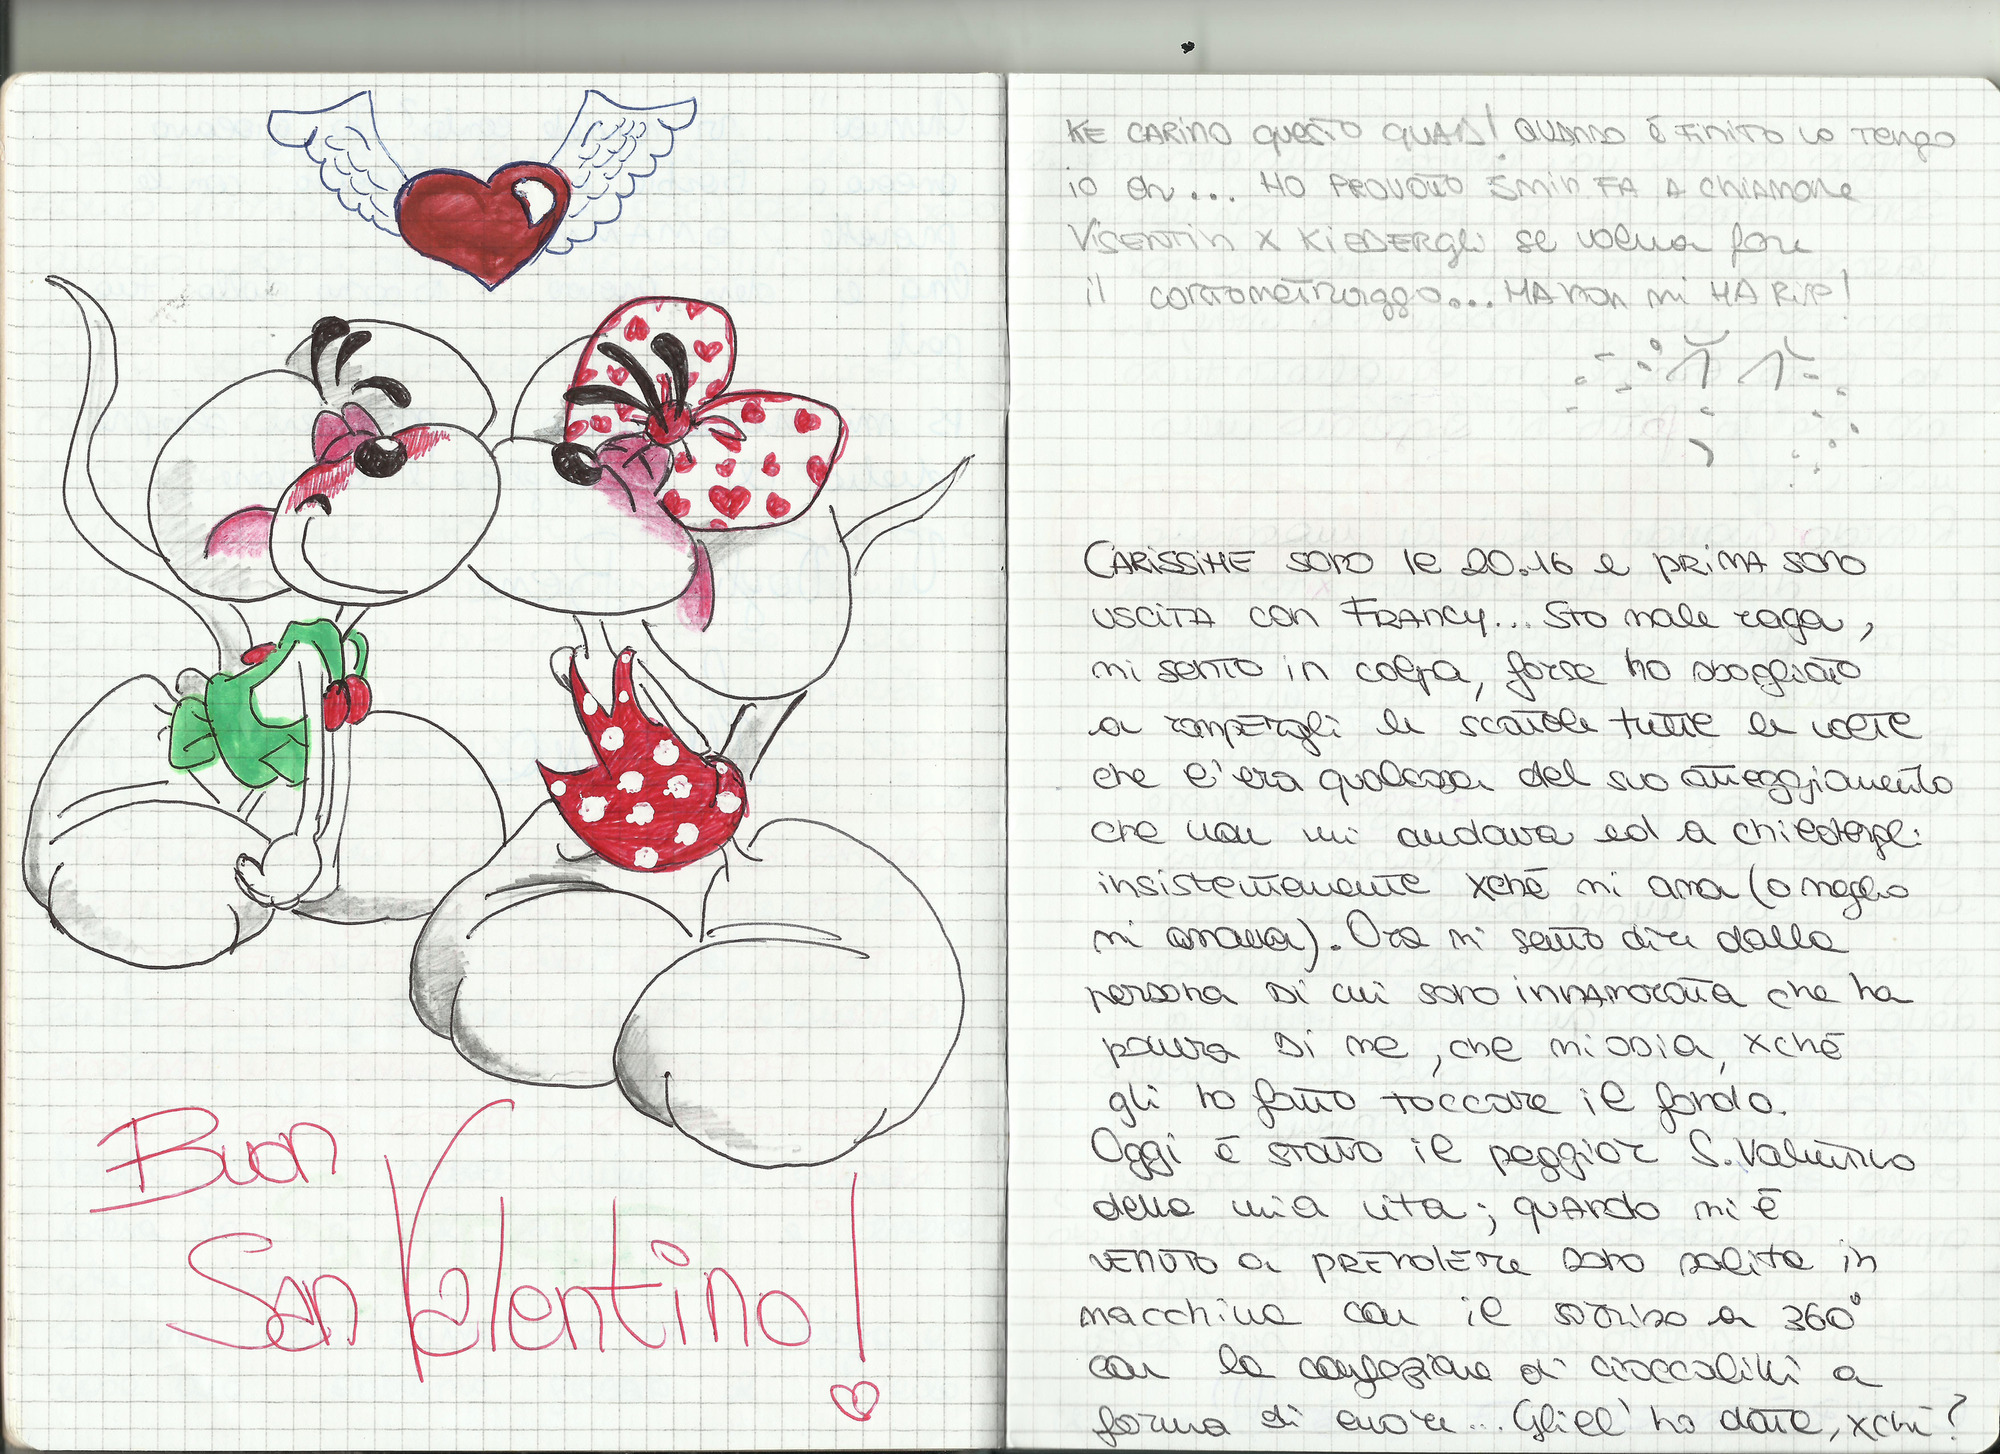 Buon
San Valentino!
KE CARINO questo QUAD! QUANDO è FINITO lo Tengo
io eh... HO PROVATO 5 min FA A CHIAMARE
VISENTIN X KIEDERGli se voleva fare
il cortometraggio... MA non mi HA RISP!
CARISSIME sono le 20.16 e PRIMA sono
USCITA con FRANCY... Sto male raga,
mi sento in colpa, forse ho sbagliato
a rompergli le scatole tutte le volte
che c'era qualcosa del suo atteggiamento
che non mi andava ed a chiedergli
insistentemente xché mi ama (o meglio
mi amava). Ora mi sento dire dalla
persona di cui sono innamorata che ha
paura di me, che mi odia, xché
gli ho fatto toccare il fondo.
Oggi è stato il peggior S. Valentino
della mia vita; quando mi è
venuto a prendere sono salita in
macchina con il sorriso a 360°
con la confezione di cioccolatini a
forma di cuore... Gliel'ho dato, xché?